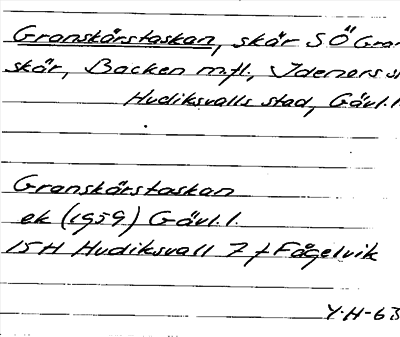 Granskärstaskan, skär SÖ Gran
skär, Backen m.fl., Idenors s
Hudiksvalls stad, Gävl.l.
Granskärstaskan
ek (1959) Gävl.l.
15H Hudiksvall 7 f Fågelvik
Y.H-63